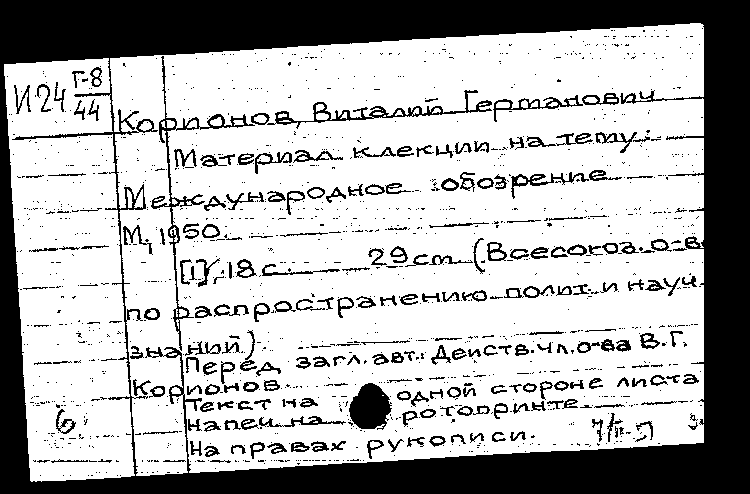 И24 Г-8
44
Корионов, Виталий Германович
Материал к лекции на тему:
Международное обозрение
М., 1950.
[1], 18 с. 29 см (Всесоюз. о-во
по распространению полит. и науч.
знаний)
Перед загл. авт.: Действ. чл. о-ва В.Г.
Корионов.
Текст на одной стороне листа
напеч. на ротопринте.
На правах рукописи.
б. 7/II-51